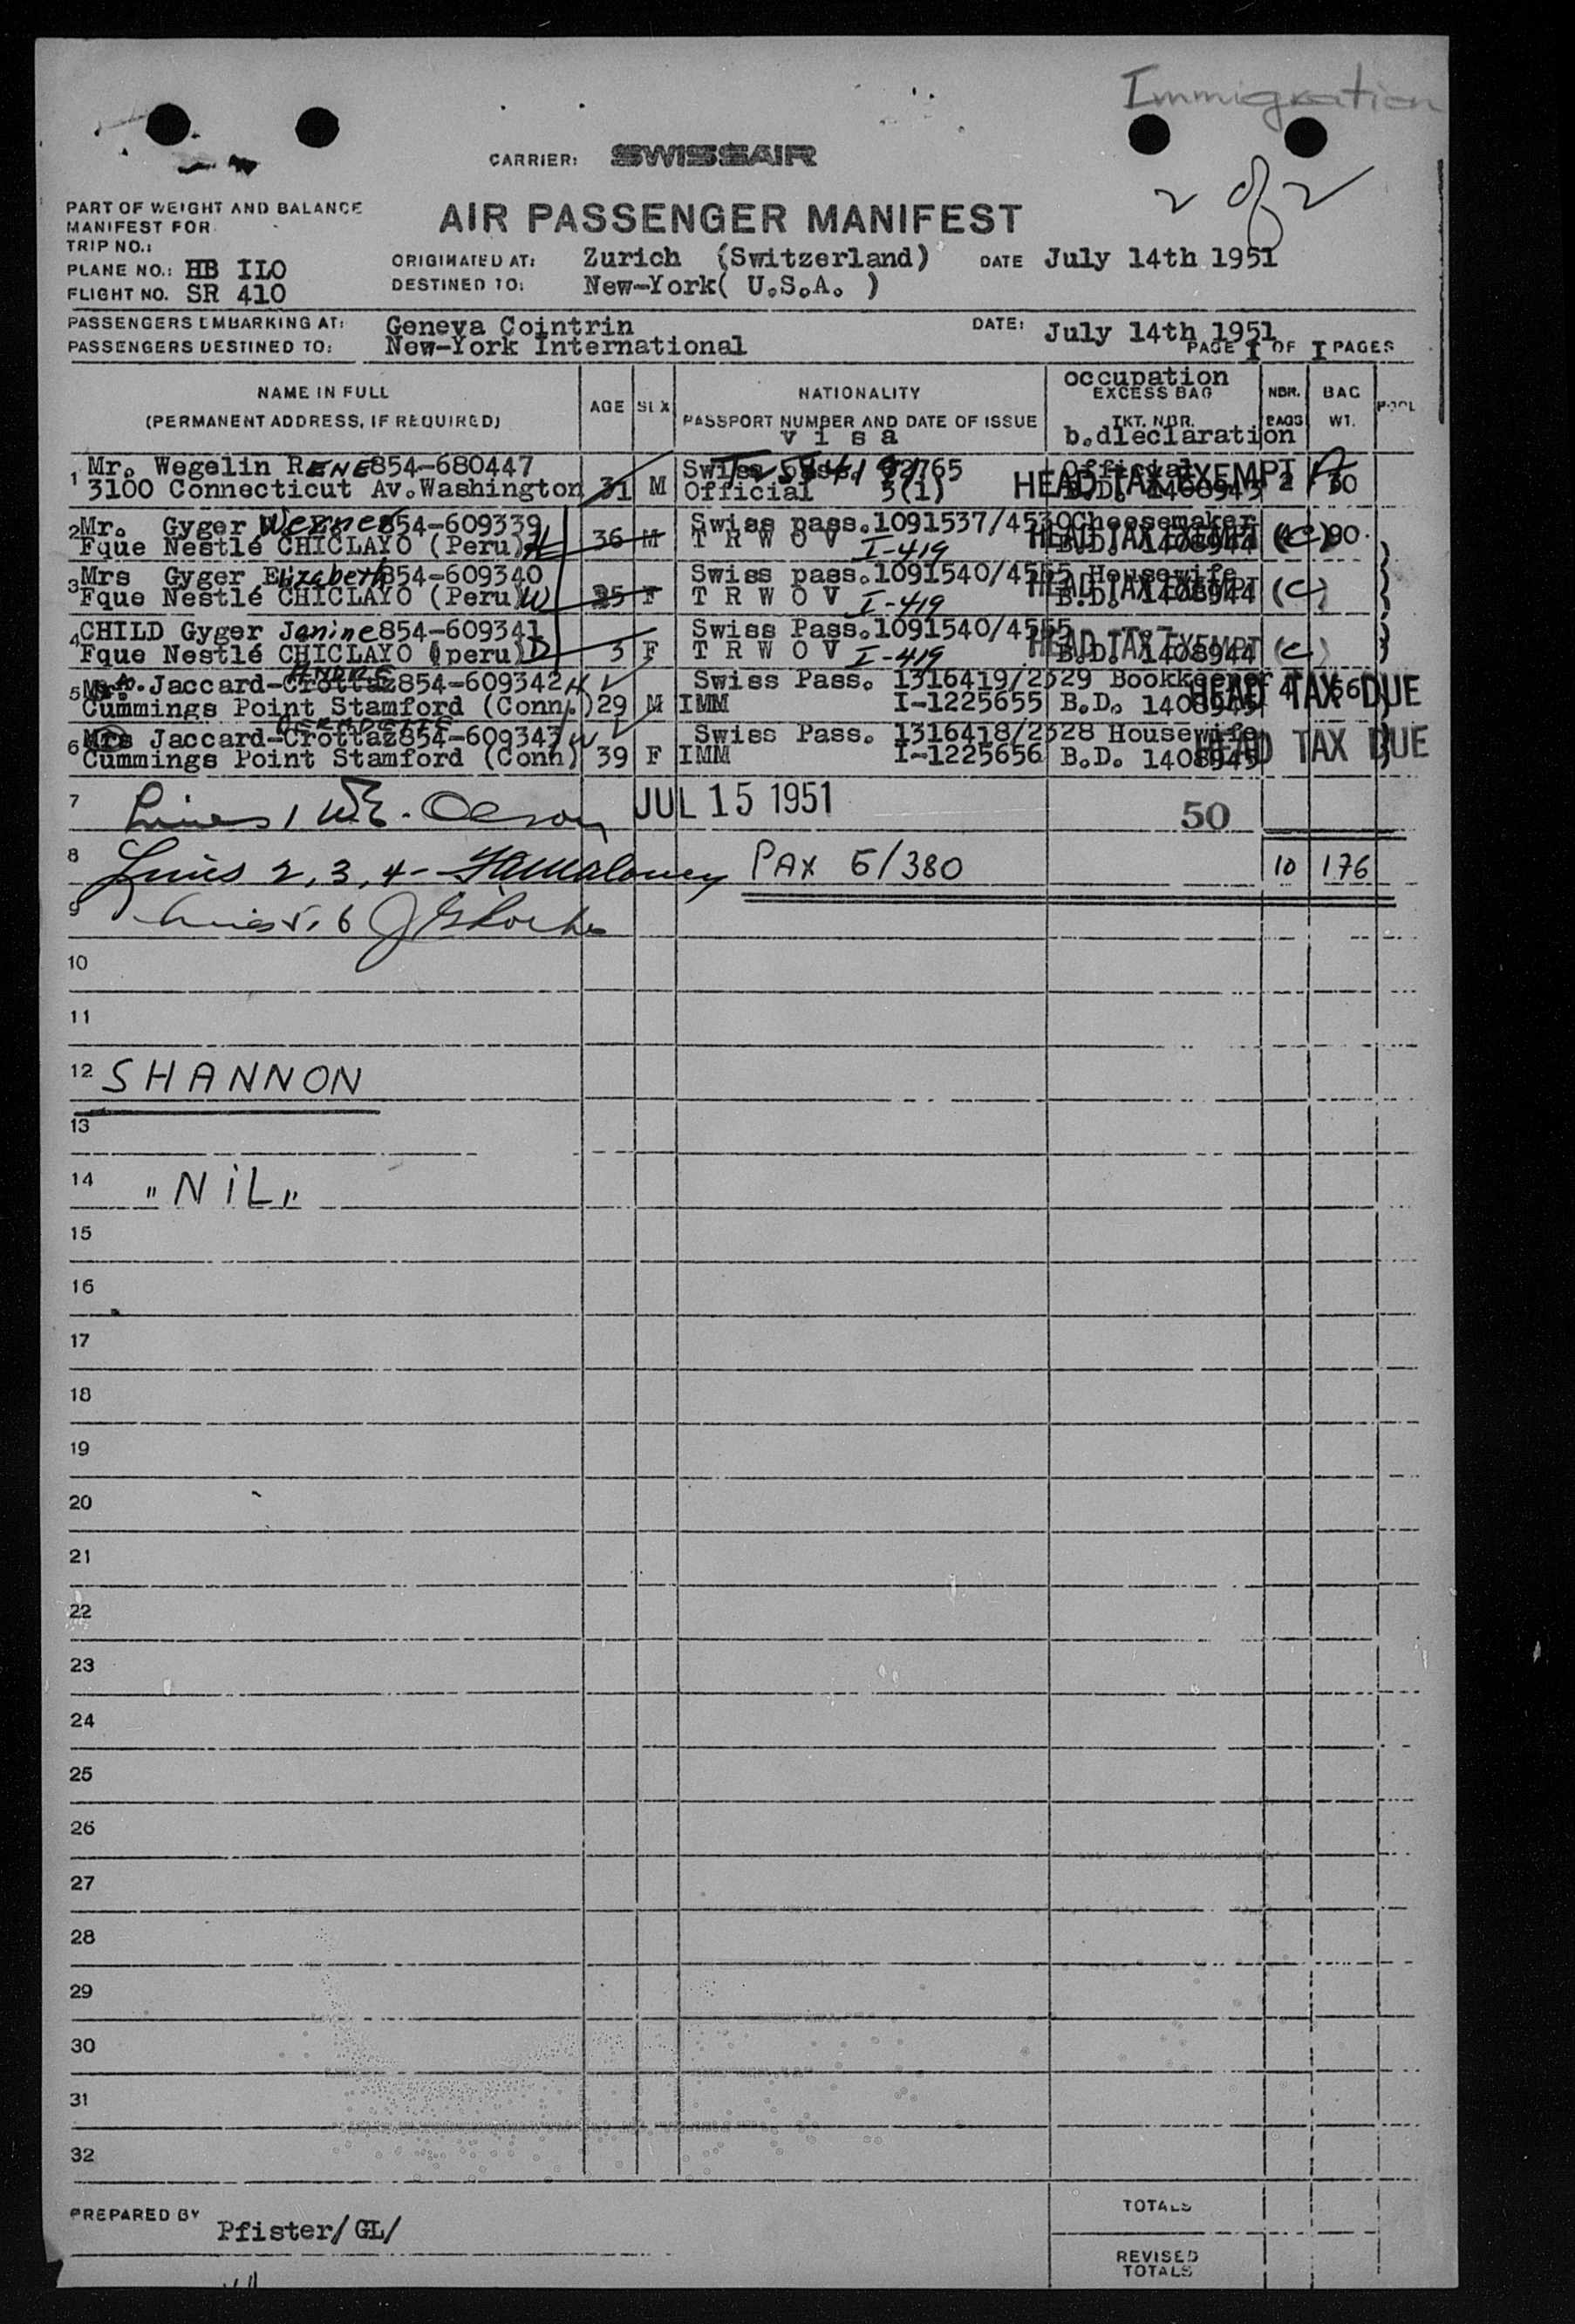 Immigration
CARRIER: SWISSAIR
2 of 2
PART OF WEIGHT AND BALANCE
MANIFEST FOR
TRIP NO.:
AIR PASSENGER MANIFEST
PLANE NO.: HB ILO
FLIGHT NO. SR 410
ORIGINATED AT: Zurich (Switzerland) DATE July 14th 1951
DESTINED TO: New-York( U.S.A. )
PASSENGERS EMBARKING AT: Geneva Cointrin DATE: July 14th 1951
PASSENGERS DESTINED TO: New-York International PAGE I OF I PAGES
NAME IN FULL AGE SEX NATIONALITY occupation EXCESS BAG NBR. BAG POOL
(PERMANENT ADDRESS, IF REQUIRED) PASSPORT NUMBER AND DATE OF ISSUE TKT. NBR. BAGS WT.
v i s a b.dleclaration
1 Mr. Wegelin RENE 854-680447 Official
3100 Connecticut Av.Washington 31 M Official 3(1) HEAD TAX EXEMPT 2 30
2 Mr. Gyger Werner 854-609339 Swiss pass.1091537/4530 Cheesemaker
Fque Nestlé CHICLAYO (Peru) 36 M T R W O V I-419 HEAD TAX EXEMPT B.D. 1408944 (C) 90.
3 Mrs Gyger Elizabeth 854-609340 Swiss pass.1091540/4565 Housewife
Fque Nestlé CHICLAYO (Peru) W F T R W O V I-419 HEAD TAX EXEMPT B.D. 1408944 (C)
4 CHILD Gyger Janine 854-609341 Swiss Pass.1091540/4565
Fque Nestlé CHICLAYO (peru) 3 F T R W O V I-419 HEAD TAX EXEMPT B.D. 1408944 (C)
ANDRE
5 Jaccard-Crottaz 854-609342 H Swiss Pass. 1316419/2329 Bookkeeper
Cummings Point Stamford (Conn.) 29 M IMM I-1225655 B.D. 1408945 HEAD TAX DUE 4 56
6 Mrs Jaccard-Crottaz 854-609343 W Swiss Pass. 1316418/2328 Housewife
Cummings Point Stamford (Conn) 39 F IMM I-1225656 B.D. 1408945 HEAD TAX DUE
7 Lines 1 W.E. Olson JUL 15 1951 50
8 Lines 2, 3, 4- PAX 6/380 10 176
9 Lines 5, 6
10
11
12 SHANNON
13
14 "NiL"
15
16
17
18
19
20
21
22
23
24
25
26
27
28
29
30
31
32
PREPARED BY Pfister/GL/
TOTALS
REVISED
TOTALS